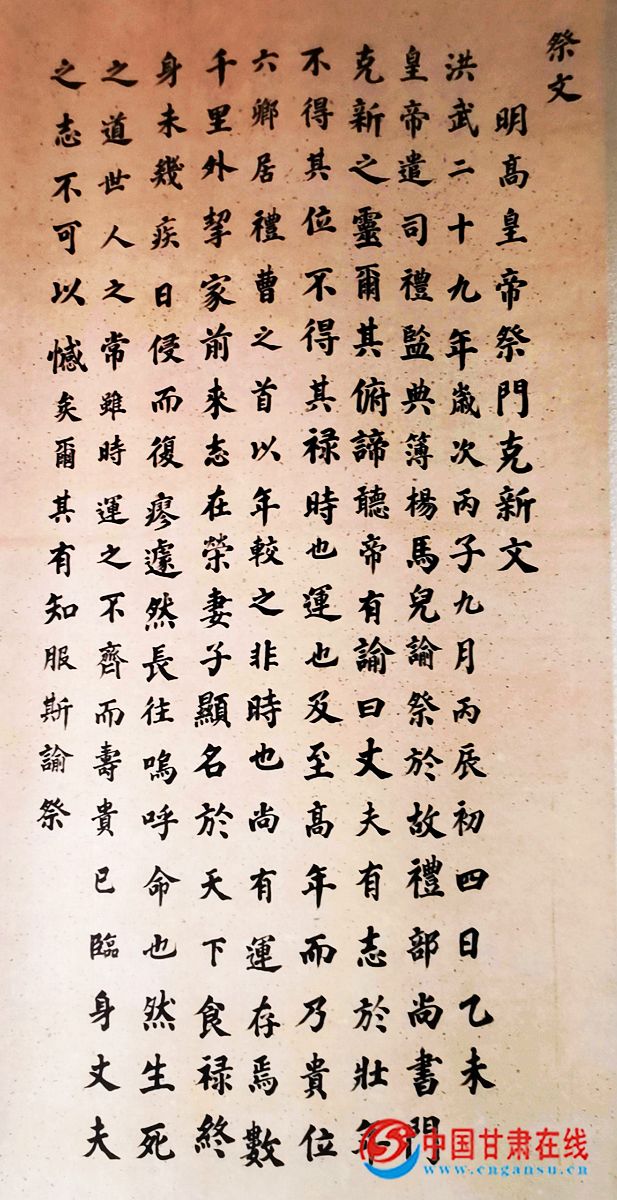 祭文
明高皇帝祭門克新文
洪武二十九年歲次丙子九月丙辰初四日乙未
皇帝遣司禮監典簿楊馬兒諭祭於故禮部尚書門
克新之靈爾其俯諦聽帝有諭曰丈夫有志於壯年
不得其位不得其禄時也運也及至高年而乃貴位
六鄉居禮曹之首以年較之非時也尚有運存焉數
千里外挈家前來志在榮妻子顯名於天下食禄終
身未幾疾日侵而復瘳遽然長往嗚呼命也然生死
之道世人之常雖時運之不齊而壽貴已臨身丈夫
之志不可以憾矣爾其有知服斯諭祭
中国甘肃在线
www.cngansu.cn